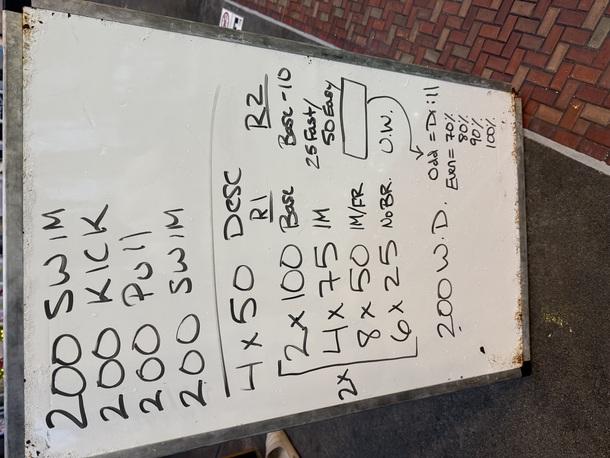 200 SWIM
200 KICK
200 PUll
200 SWIM
4 x 50 DESC
R1 R2
2x
2 x 100 Base Base -10
4 x 75 IM 25 Fast/
50 Easy
8 x 50 IM/FR
6 x 25 No BR. U.W.
200 W.D. Odd = Drill
Even = 70%
80%
90%
100%